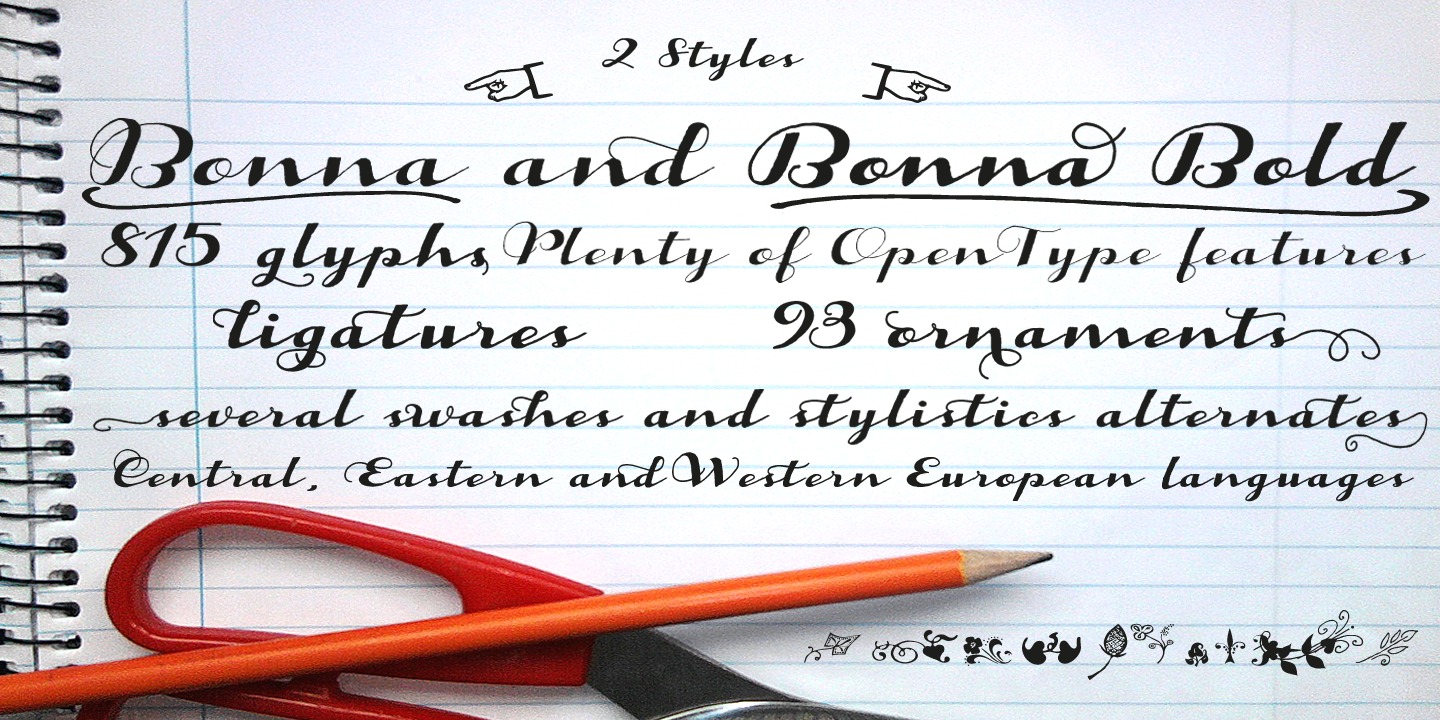 2 Styles
Bonna and Bonna Bold
815 glyphs Plenty of OpenType features
ligatures 93 ornaments
several swashes and stylistics alternates
Central, Eastern and Western European languages